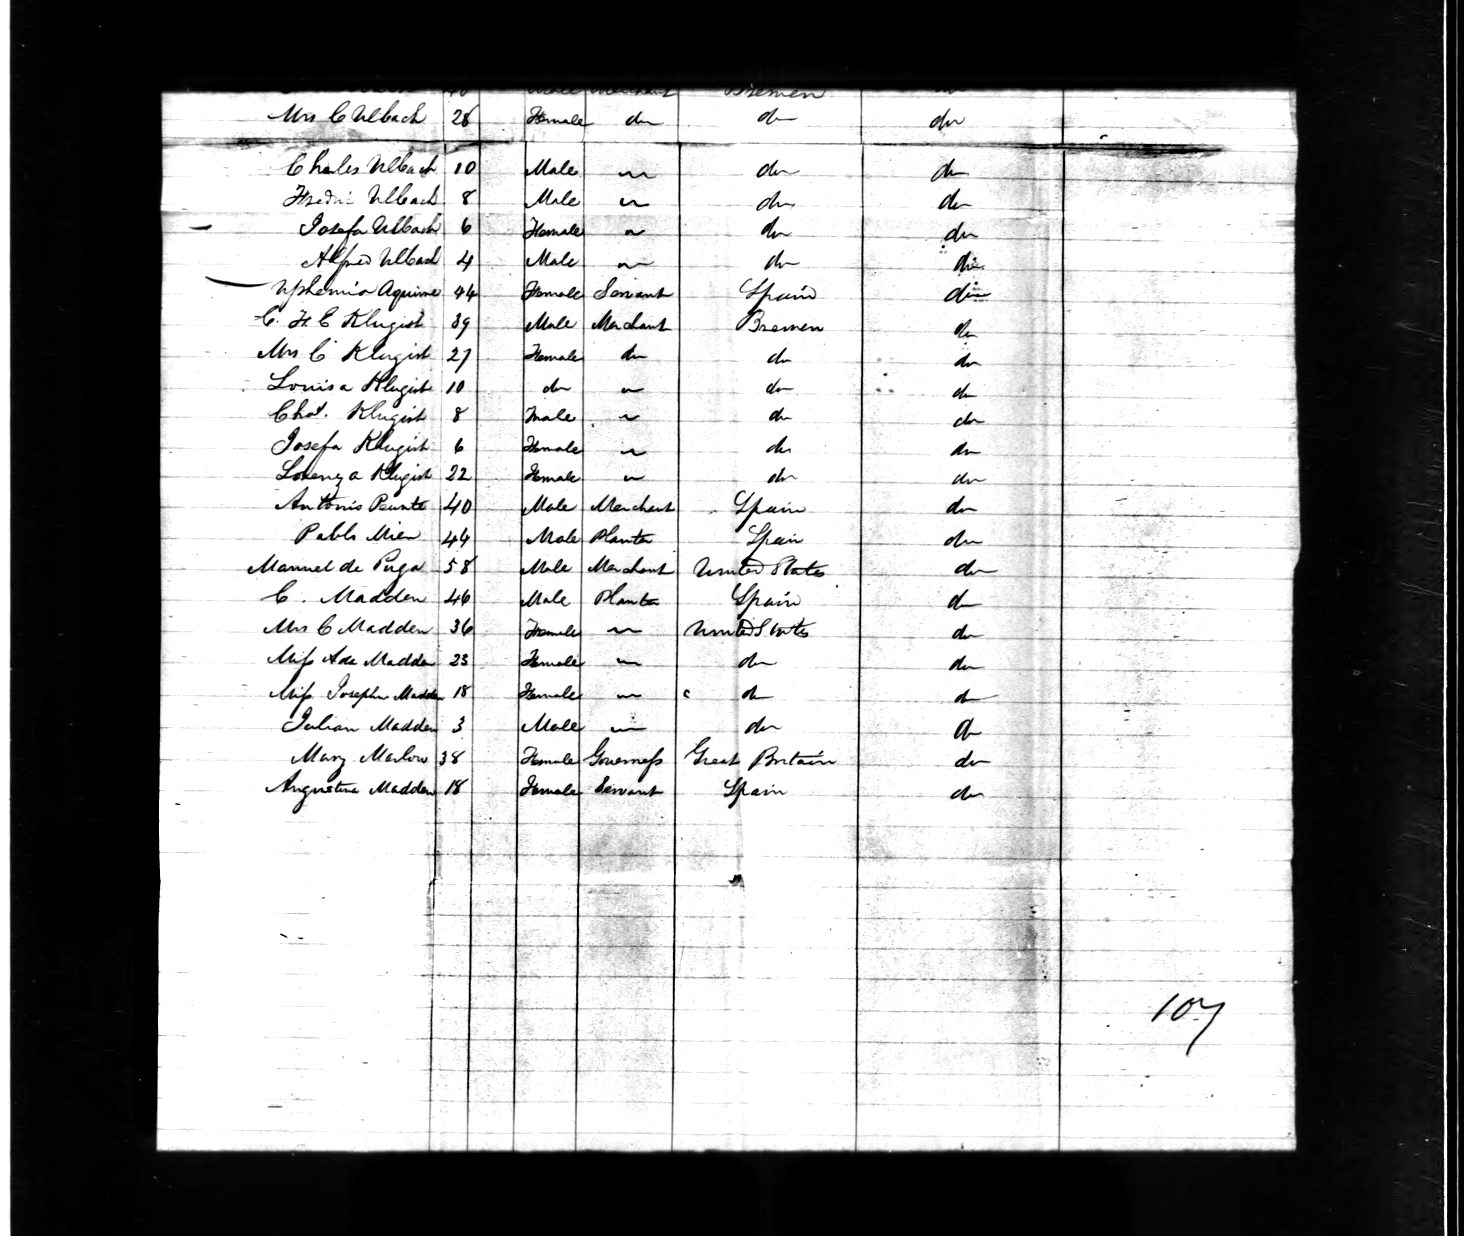 40 Male Merchant Bremen do
Mrs C Ulbach 28 Female do do do
Charles Ulbach 10 Male " do do
Fredric Ulbach 8 Male " do do
Josefa Ulbach 6 Female " do do
Alfred Ulbach 4 Male " do do
Uphemia Aquirre 44 Female Servant Spain do
C. H. C Klugist 39 Male Merchant Bremen do
Mrs C Klugist 27 Female do do do
Louisa Klugist 10 do " do do
Chas. Klugist 8 Male " do do
Josefa Klugist 6 Female " do do
Lorenza Klugist 22 Female " do do
Antonio Puente 40 Male Merchant Spain do
Pablo Mier 44 Male Planter Spain do
Manuel de Puga 58 Male Merchant United States do
C. Madden 46 Male Planter Spain do
Mrs C Madden 36 Female " United States do
Miss Ada Madden 23 Female " do do
Miss Josepha Madden 18 Female " do do
Julian Madden 3 Male " do do
Mary Marlow 38 Female Governess Great Britain do
Angustina Madden 18 Female Servant Spain do
107